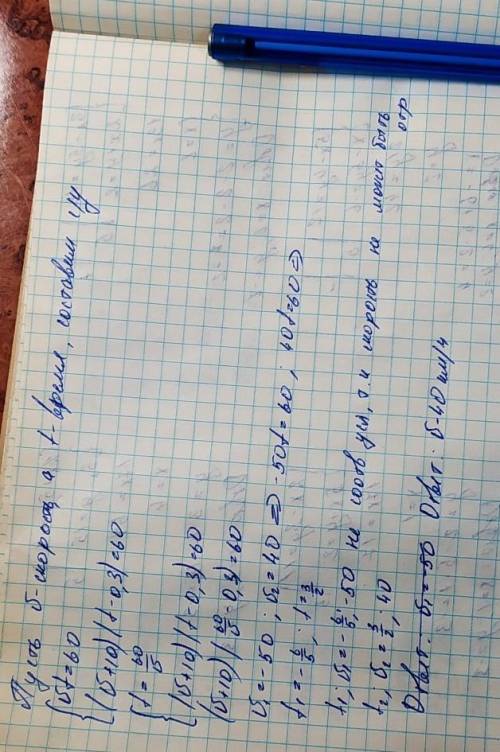 Пусть v-скорость, а t-время, составим у/у
{ vt=60
{ (v+10)(t-0,3)=60
{ (v+10)(t-0,3)=60
{ t=60/v
(v+10)(60/v-0,3)=60
v₁=-50 ; v₂=40 ⇒ -50t=60 ; 40t=60 ⇒
t₁=-6/5 ; t=3/2
t₁; v₁=-6/5; -50 не соотв усл, т.к скорость не может быть отр
t₂; v₂=3/2; 40
Ответ: v₁=-50 Ответ: v-40 км/ч